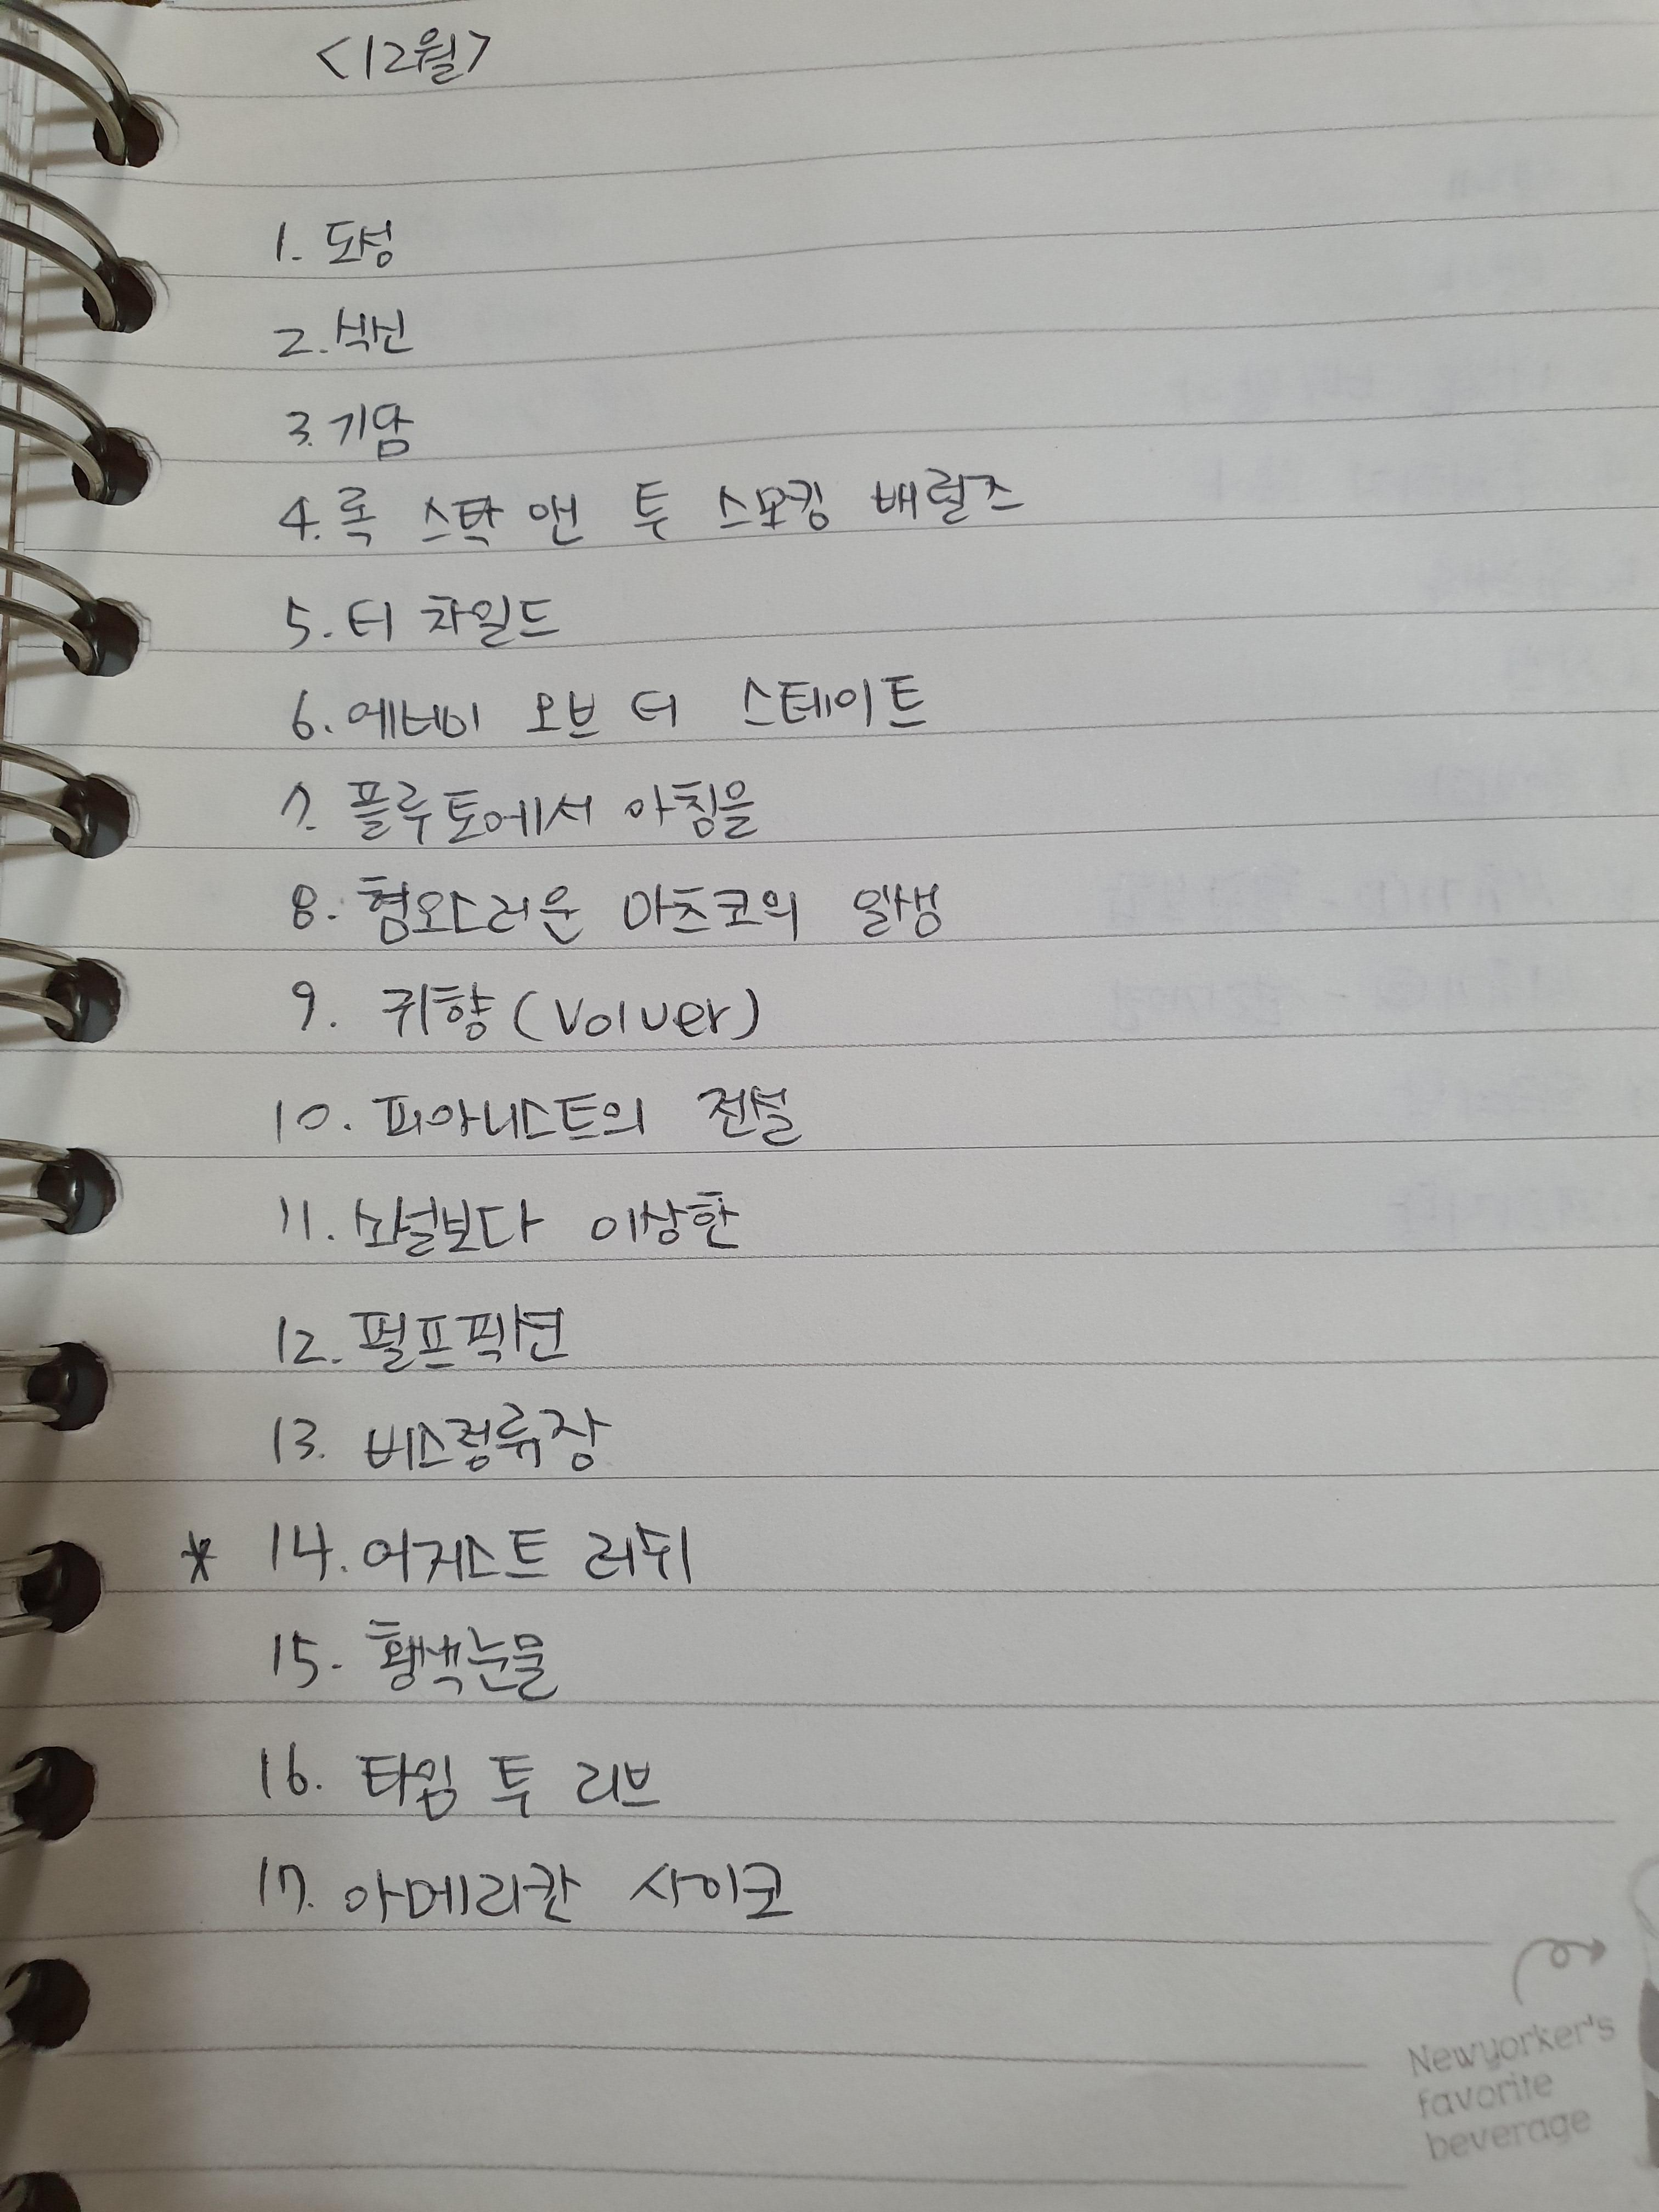 <12월>
1. 도성
2. 식신
3. 기담
4. 록 스탁 앤 투 스모킹 배럴즈
5. 터 차일드
6. 에너미 오브 더 스테이트
7. 플루토에서 아침을
8. 혐오스러운 마츠코의 일생
9. 귀향 (Volver)
10. 피아니스트의 전설
11. 소설보다 이상한
12. 펄프픽션
13. 버스정류장
* 14. 어거스트 러쉬
15. 황색눈물
16. 타임 투 리브
17. 아메리칸 사이코
Newyorker's
favorite
beverage